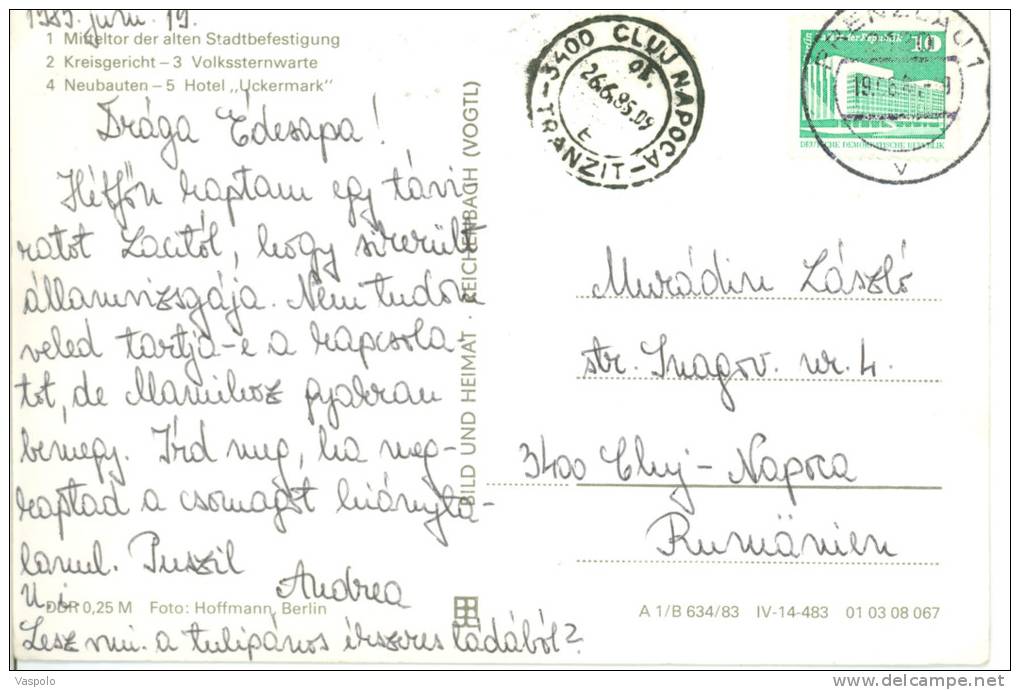 1985. jun. 19.
1 Mitteltor der alten Stadtbefestigung
2 Kreisgericht – 3 Volkssternwarte
4 Neubauten – 5 Hotel „Uckermark"
Drága Édesapa!
Hétfőn kaptam egy távi-
ratot Lacitól, hogy sikerült
államvizsgája. Nem tudom
veled tartja-e a kapcsola-
tot, de Mamihoz gyakran
bemegy. Írd meg, ha meg-
kaptad a csomagot hiányta-
lanul. Puszil
Andrea
U.i.
Lesz mi a tulipános ékszeres ládából?
DDR 0,25 M Foto: Hoffmann, Berlin
BILD UND HEIMAT · REICHENBACH (VOGTL)
3400 CLUJ NAPOCA
26.6.85.09
TRANZIT
PRENZLAU 1
10
DEUTSCHE DEMOKRATISCHE REPUBLIK
Murádin László
str. Snagov. nr. 4.
3400 Cluj-Napoca
Rumänien
A 1/B 634/83 IV-14-483 01 03 08 067
Vaspolo
delcampe.net